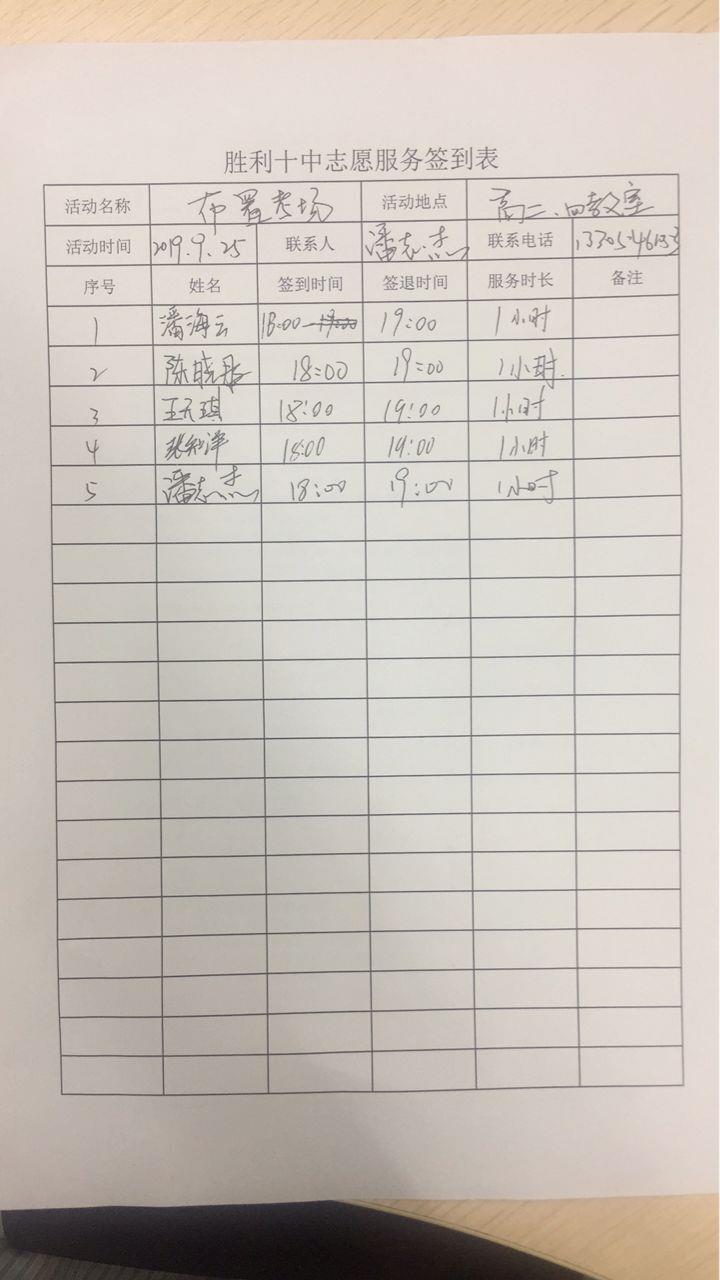 胜利十中志愿服务签到表
活动名称 布置考场 活动地点 高二、四教室
活动时间 2019.9.25 联系人 潘志杰 联系电话
序号 姓名 签到时间 签退时间 服务时长 备注
1 潘海云 18:00 19:00 1小时
2 陈晓彤 18:00 19:00 1小时.
3 王天琪 18:00 19:00 1小时
4 18:00 19:00 1小时
5 潘志杰 18:00 19:00 1小时